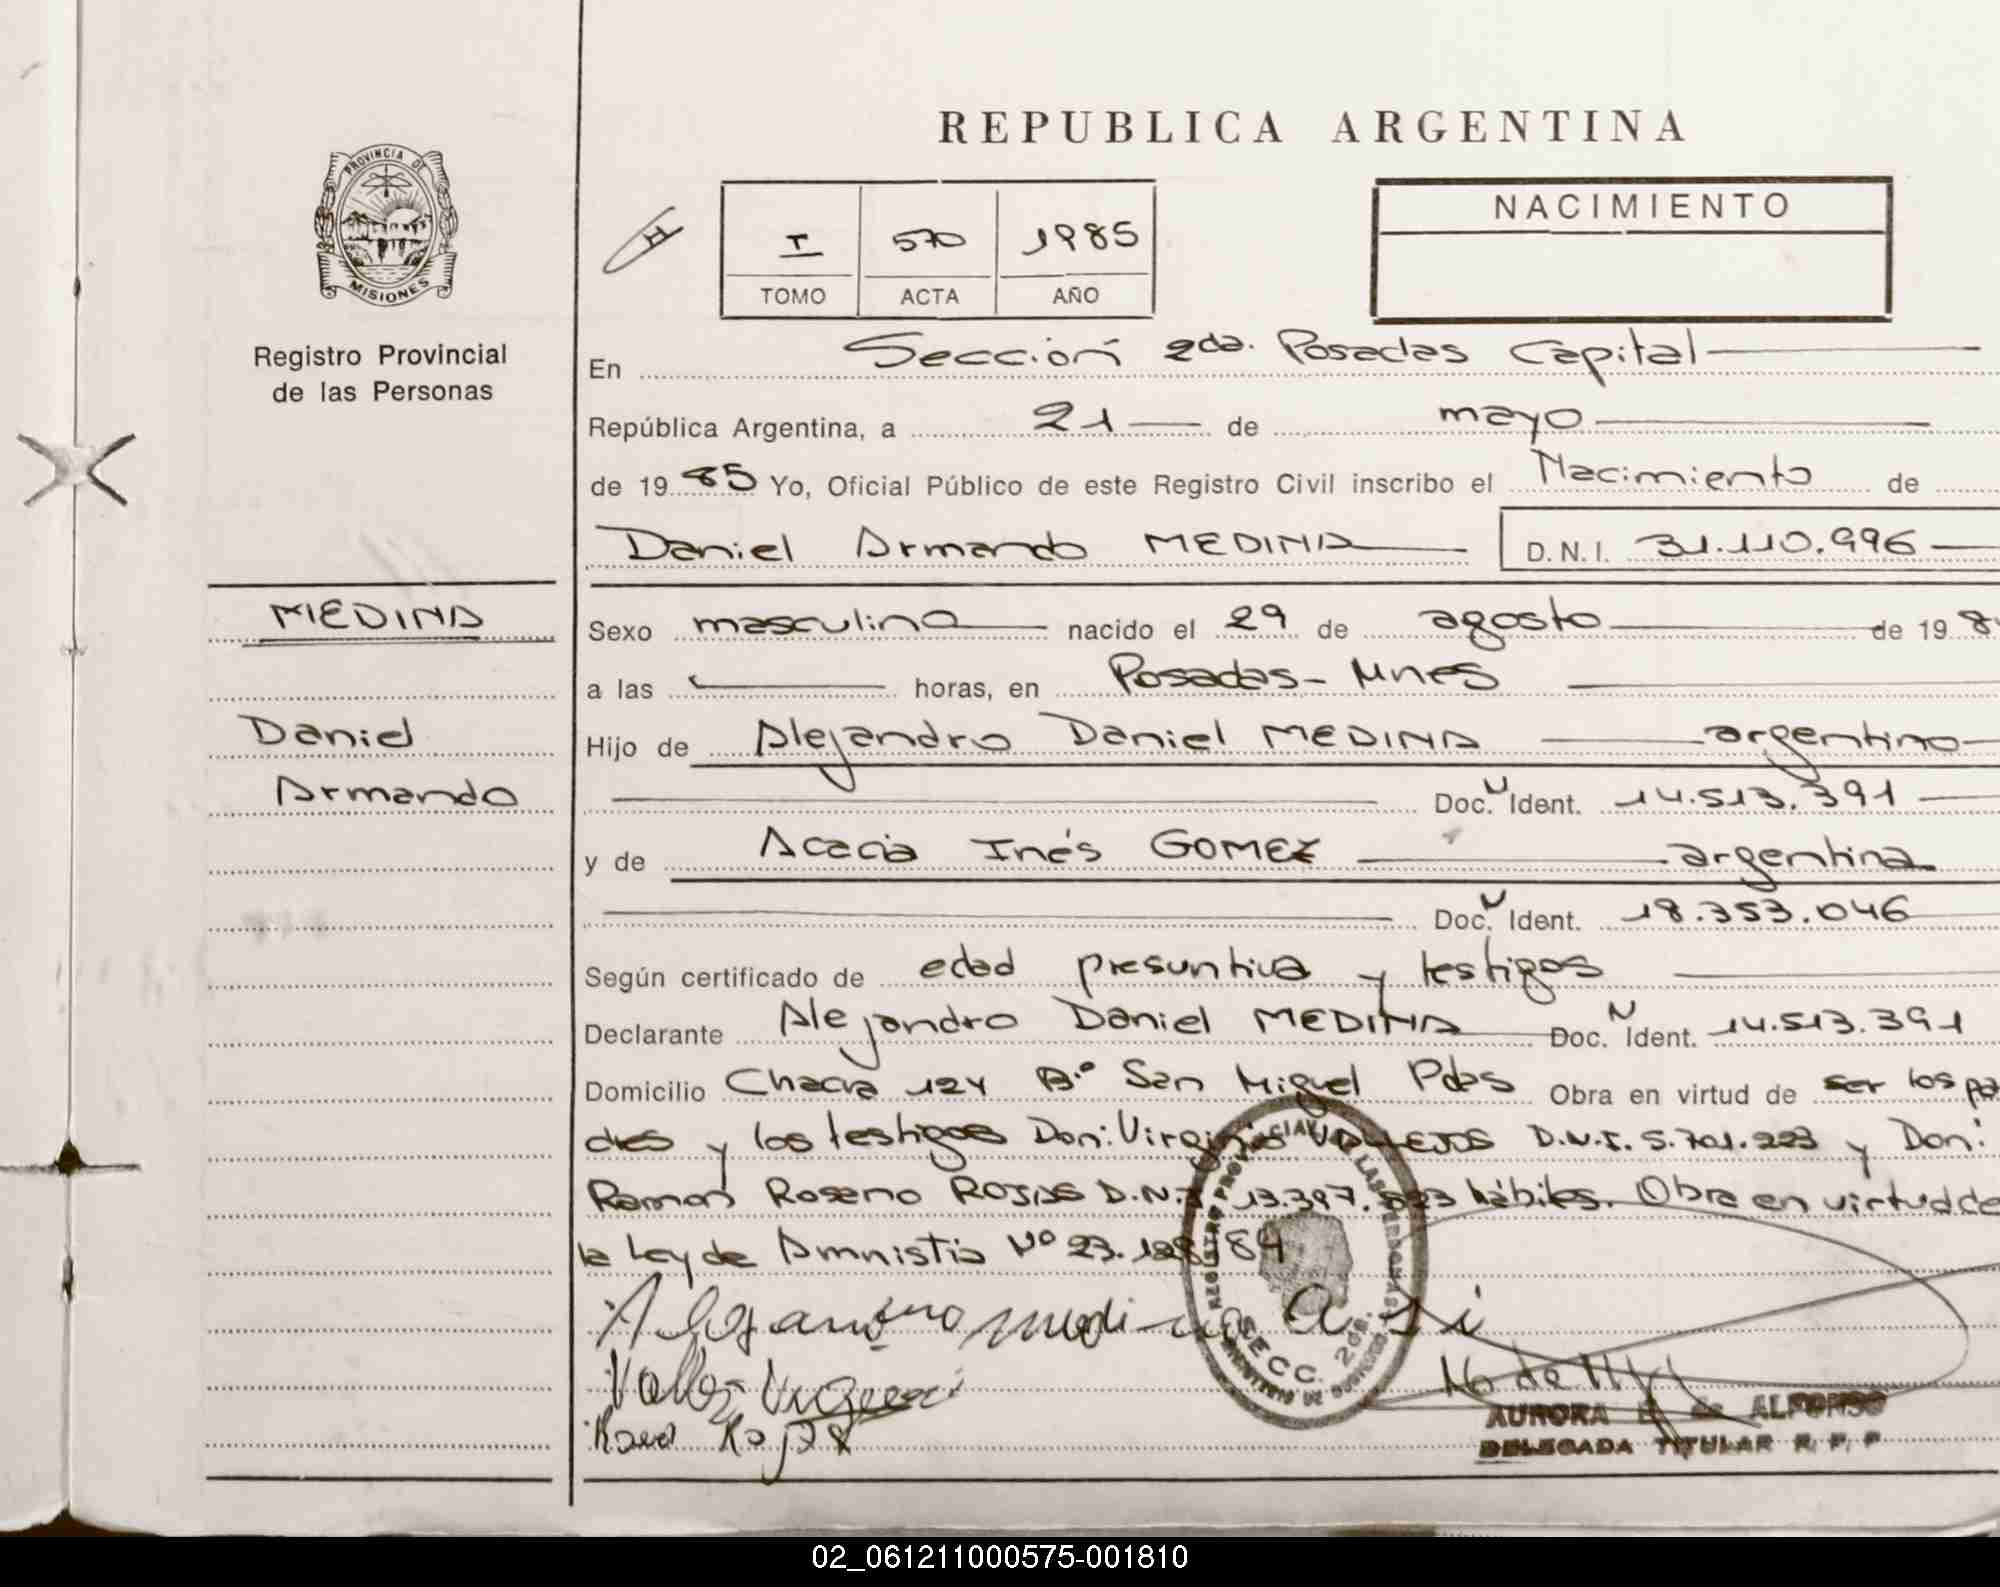 REPUBLICA ARGENTINA
PROVINCIA DE
MISIONES
Registro Provincial
de las Personas
I 570 1985
TOMO ACTA AÑO
NACIMIENTO
En Sección 2da. Posadas Capital
República Argentina, a 21 de mayo
de 1985 Yo, Oficial Público de este Registro Civil inscribo el Nacimiento de
Daniel Armando MEDINA D.N.I. 31.110.996
MEDINA
Daniel
Armando
Sexo masculino nacido el 29 de agosto de 198
a las horas, en Posadas - Mnes
Hijo de Alejandro Daniel MEDINA argentino
Doc. N Ident. 14.513.391
y de Acacia Inés GOMEZ argentina
Doc. N Ident. 18.353.046
Según certificado de edad presuntiva y testigos
Declarante Alejandro Daniel MEDINA Doc. N Ident. 14.513.391
Domicilio Chacra 124 B.º San Miguel Pdas Obra en virtud de ser los pa
dres y los testigos Don: Virginio VALLEJOS D.N.I. 5.701.223 y Don:
Ramon Roseno ROJAS D.N.I. 13.397. hábiles. Obra en virtud de
la Ley de Amnistia Nº 23. 84
REGISTRO PROVINCIAL DE LAS PERSONAS
SECC. 2da.
AURORA de ALFONSO
DELEGADA TITULAR R. P. P
02_061211000575-001810